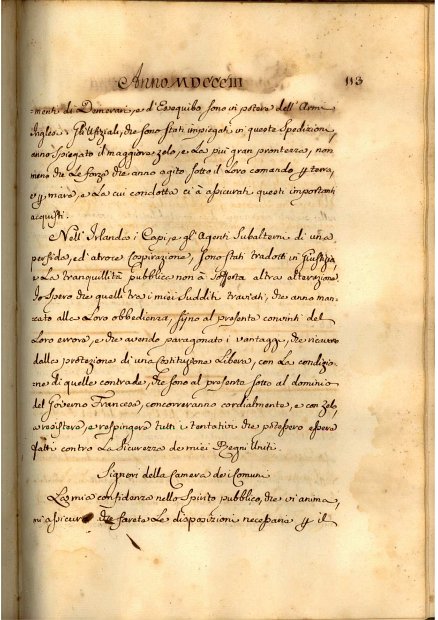 Anno MDCCCIII 113
=menti di Demerari, e d'Esequibo sono in potere dell'Armi
Inglesi. Gl'Ufiziali, che sono stati impiegati in queste Spedizioni,
anno spiegato il maggiore zelo, e la piu gran prontezza, non
meno che le forze che anno agito sotto il Loro comando p terra,
e p mare, e la cui condotta ci à assicurati questi importanti
acquisti.
Nell'Irlanda i Capi, e gl'Agenti Subalterni di una
perfida, ed atroce Cospirazione, sono stati tradotti in Giustizia,
e la tranquillità pubblica non à sofferta altra alterazione.
Io spero che quelli tra i miei Sudditi traviati, che anno man-
cato alla Loro obbedienza, sono al presente convinti del
Loro errore, e che avendo paragonato i vantaggi, che ricevono
dalla protezione di una Costituzione Libera, con La condizio-
ne di quelle contrade, che sono al presente sotto al dominio
del Governo Francese, concorreranno cordialmente, e con zelo,
a resistere, e respingere tutti i tentativi che potessero essere
fatti contro la Sicurezza de miei Regni Uniti.
Signori della Camera de i Comuni
La mia confidenza nello Spirito pubblico, che vi anima,
mi assicura che farete Le disposizioni necessarie p il